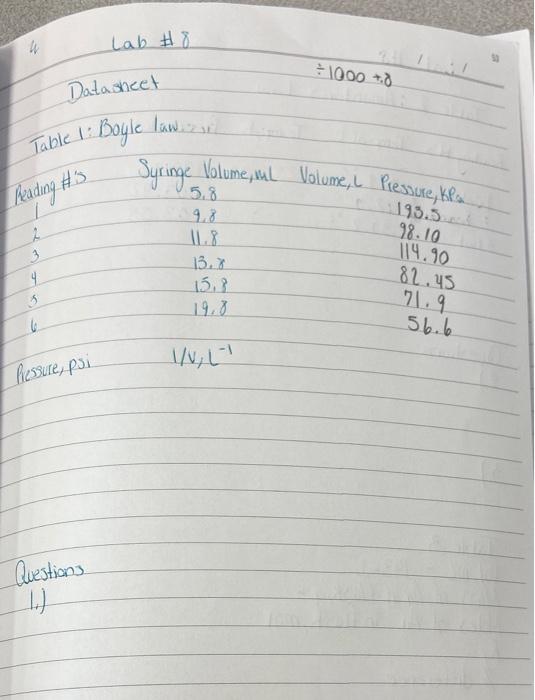 4
Lab #8
÷1000 +.8
Datasheet
Table 1: Boyle law
Reading #'s Syringe Volume, ml Volume, L Pressure, KPa
1 5.8 193.5
2 9.8 98.10
3 11.8 114.90
4 13.8 82.45
5 15.8 71.9
6 19.8 56.6
Pressure, psi 1/V, L⁻¹
Questions
1.)